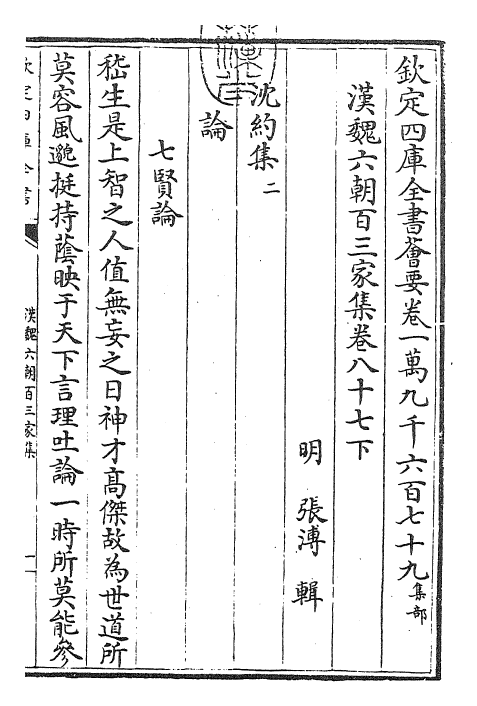 欽定四庫全書薈要卷一萬九千六百七十九集部
漢魏六朝百三家集卷八十七下
明 張溥 輯
沈約集二
論
七賢論
嵇生是上智之人值無妄之日神才高傑故為世道所
莫容風邈挺持蔭映于天下言理吐論一時所莫能參
欽定四庫全書
漢魏六朝百三家集
一